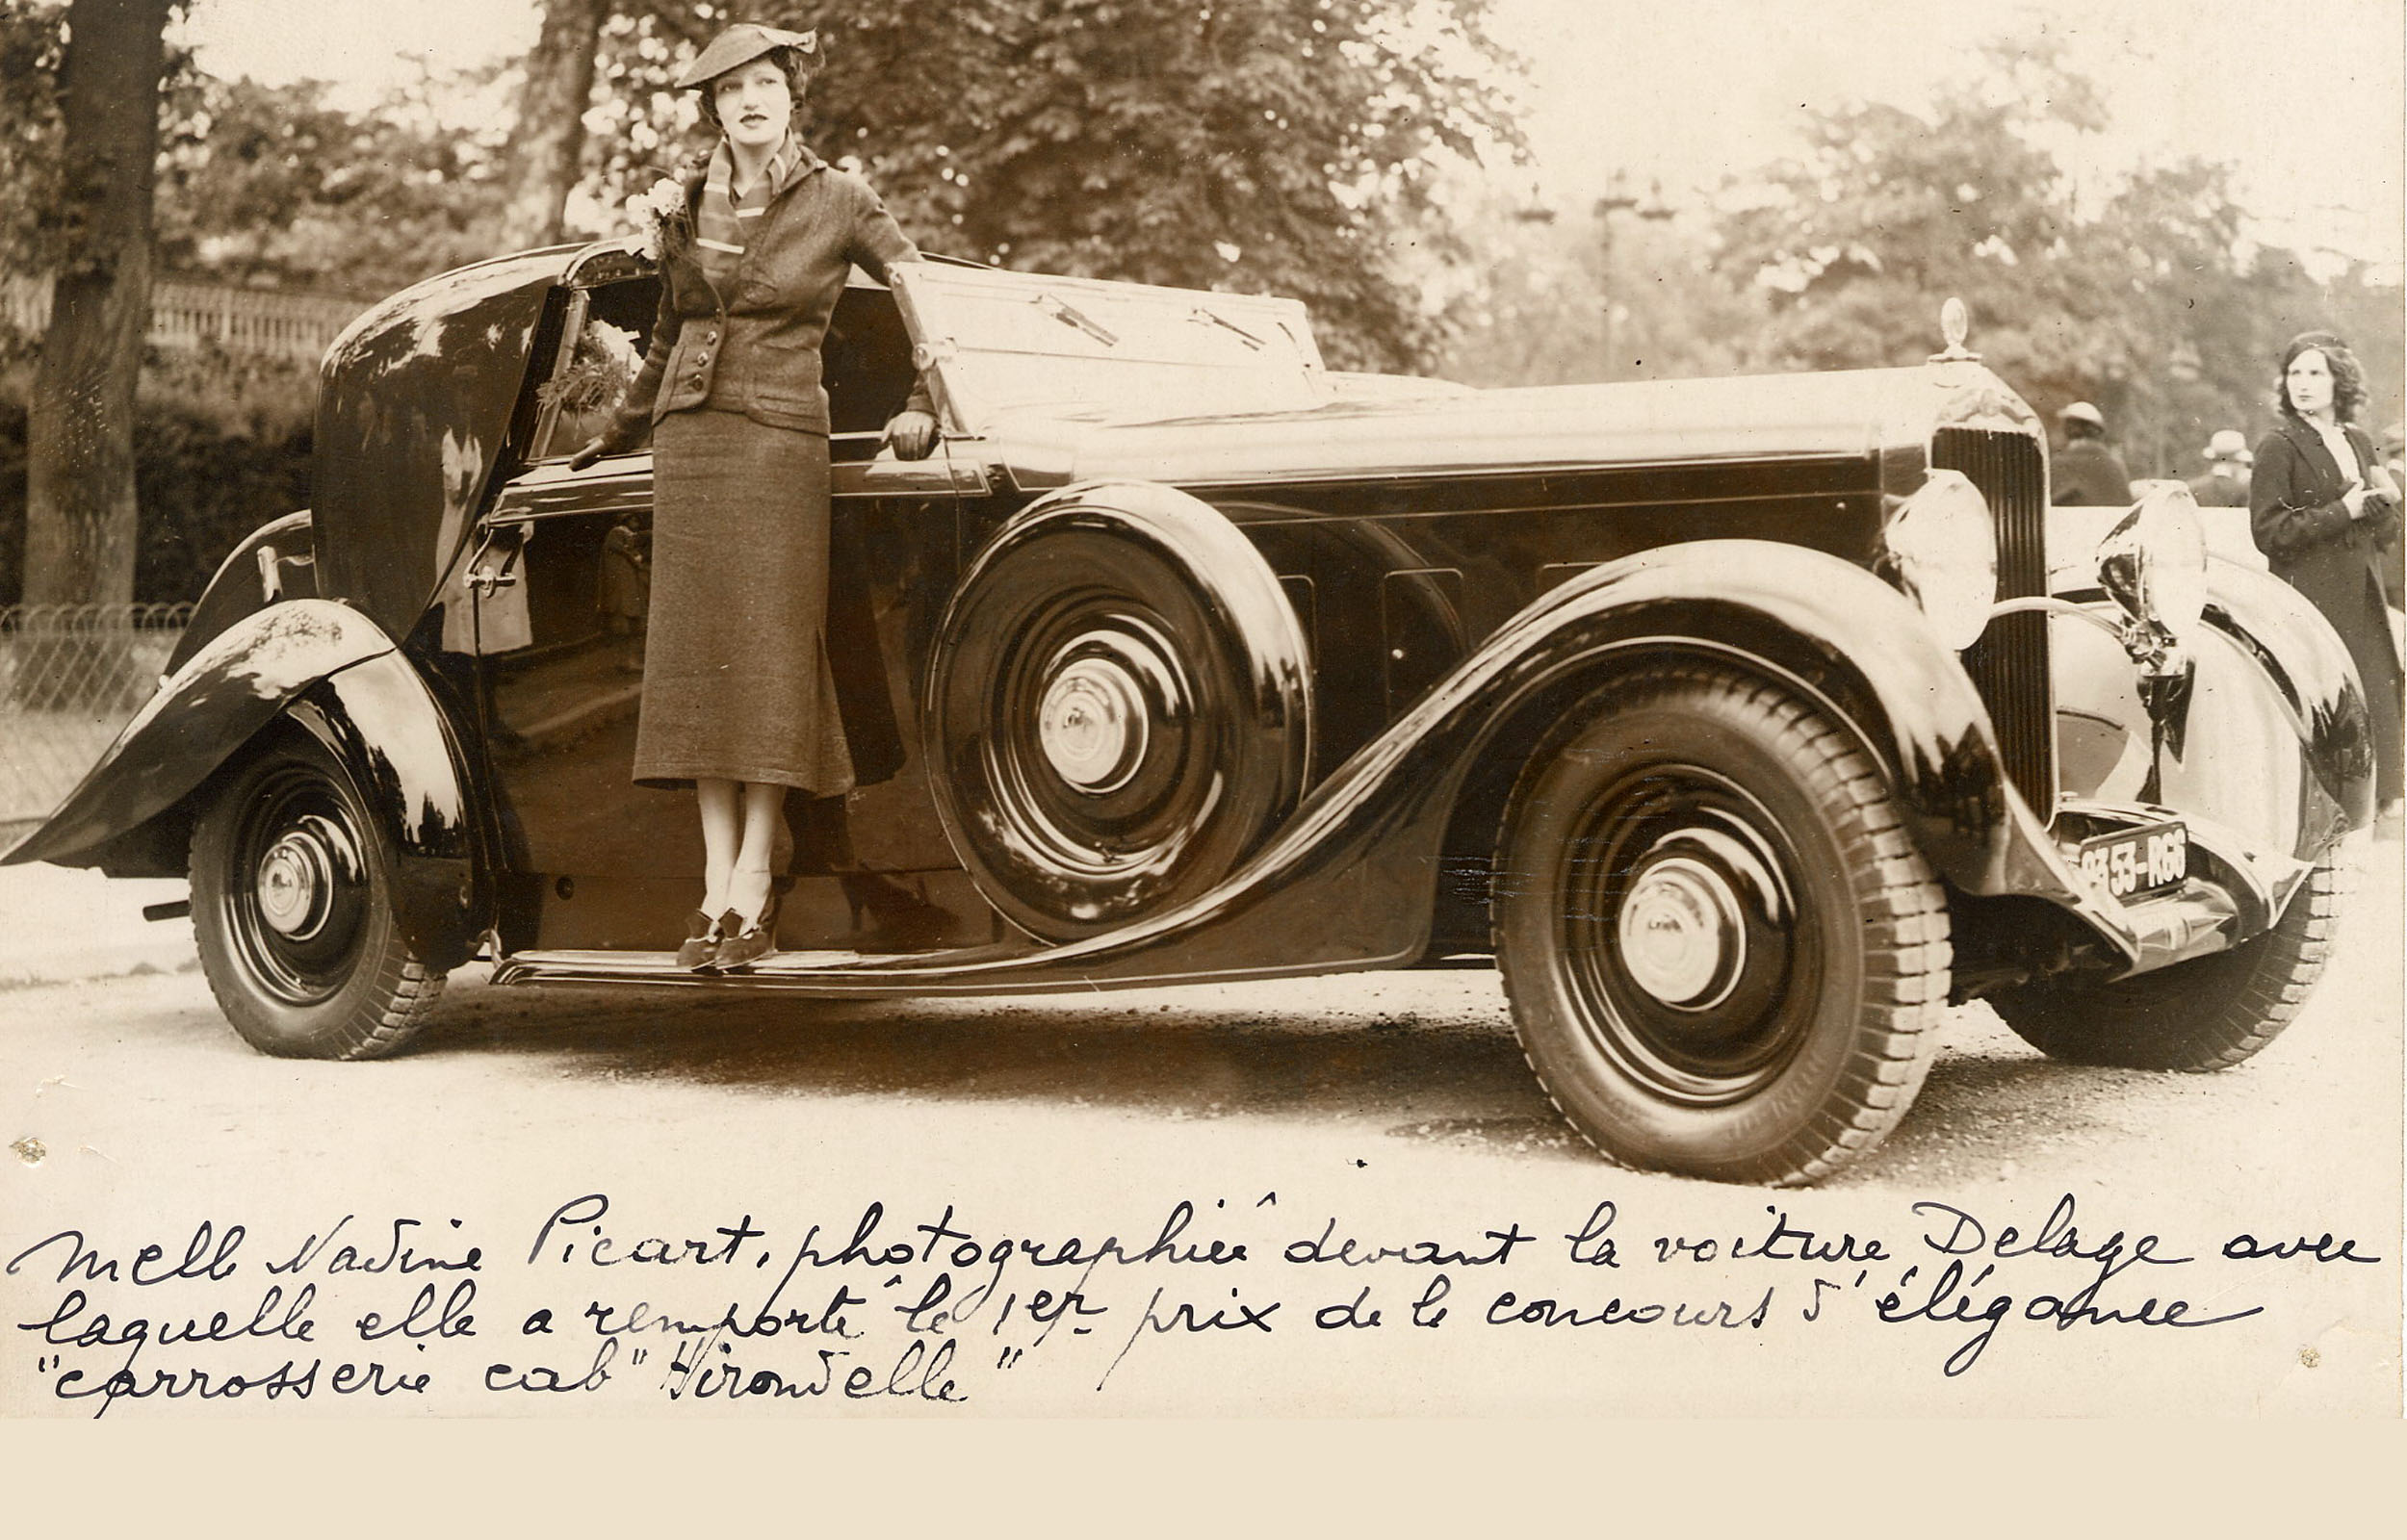 9353-R66
Melle Nadine Picart, photographiée devant la voiture Delage avec
laquelle elle a remporté le 1er prix de le concours d'élégance
"carrosserie cab" Hirondelle"